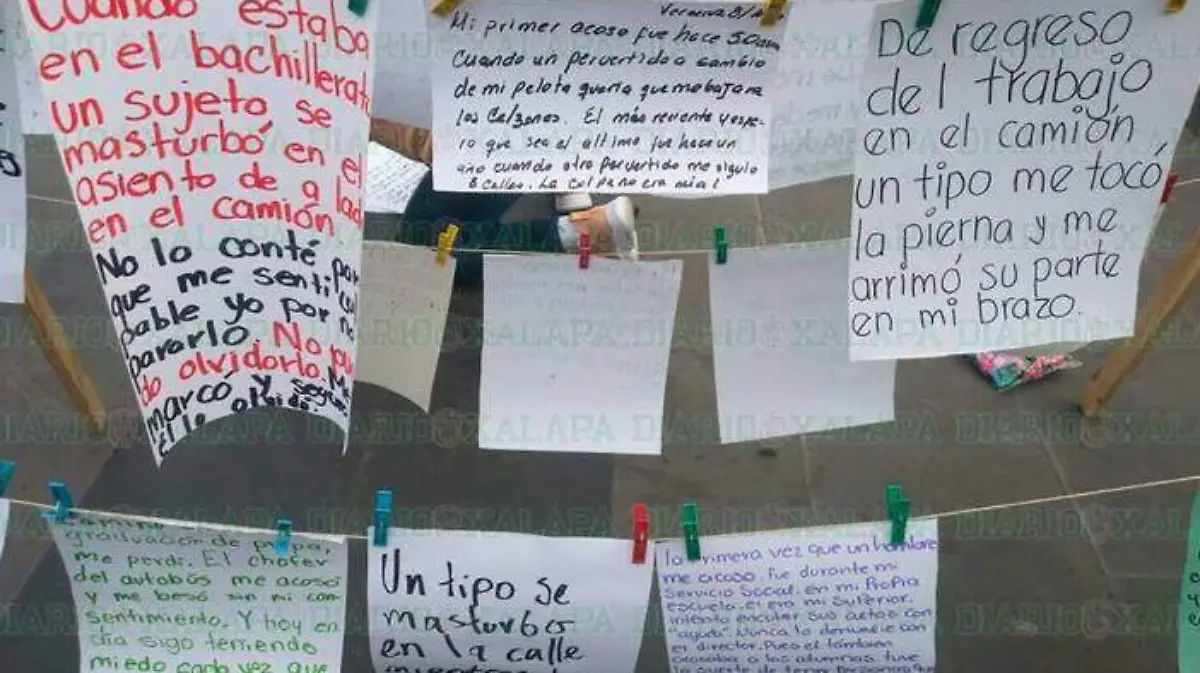 Cuando estaba
en el bachillerat
un sujeto se
masturbó en el
asiento de a lad
en el camión
No lo conté por
que me sentí cul
pable yo por no
pararlo. No
do olvidarlo. Me
marcó y
él lo olvidó.
Veracruz 8/
Mi primer acoso fue hace 50 años
Cuando un pervertido a cambio
de mi pelota quería que me bajara
los Calzones. El más reciente y espe-
ro que sea el ultimo fue hace un
año cuando otro pervertido me siguio
8 calles. La culpa no era mia!
De regreso
del trabajo
en el camión
un tipo me tocó
la pierna y me
arrimó su parte
en mi brazo.
graduación de prepa,
me perdí. El chofer
del autobús me acosó
y me besó sin mi con-
sentimiento. Y hoy en
día sigo teniendo
miedo cada vez que
Un tipo se
masturbo
en la calle
mientras
la primera vez que un hombre
me acoso, fue durante mi
Servicio Social. en mi Propia
escuela. el era mi Superior.
intento encubrir sus actos con
"ayuda". Nunca lo denuncie con
el director. Pues el tambien
acosaba a las alumnas. tuve
la suerte de tener personas que
DIARIO XALAPA